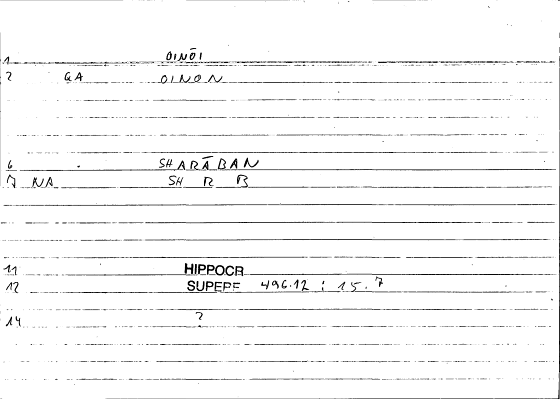 1 OINŌI
2 GA OINON
6 SHARĀBAN
7 NA SH R B
11 HIPPOCR
12 SUPERF 496.12 : 15.7
14 ?